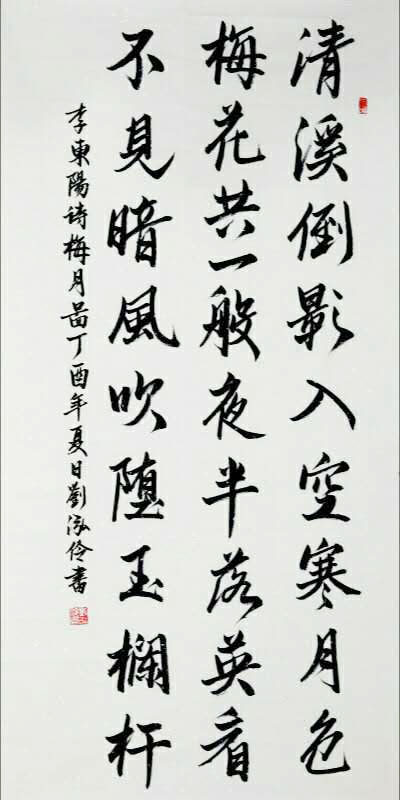 清溪倒影入空寒月色
梅花共一般夜半落英看
不見暗風吹堕玉欄杆
李東陽诗梅月畕丁酉年夏日劉泓伶書